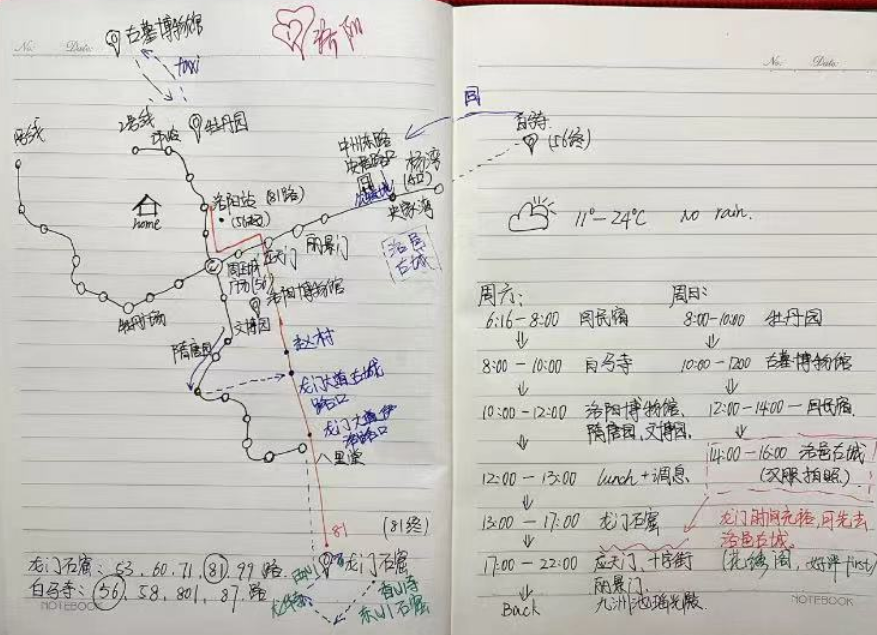 No.
Date
洛阳
古墓博物馆
taxi
2号线
牡丹园
1号线
洛阳站 (81路)
home
中州东路
杨湾
史家湾
洛邑
古城
丽景门
应天门
周王城
广场(56)
洛阳博物馆
文博园
隋唐园
牡丹广场
赵村
龙门大道古城
路口
龙门大道伊
洛路口
八里堂
81
(81终)
龙门石窟
龙门石窟: 53, 60, 71, 81, 99 路
白马寺: 56, 58, 801, 87, 路
西山
香山寺
东山石窟
NOTEBOOK
No.
Date
回
白马寺
(56终)
11°-24°C No rain.
周六:
6:16-8:00 回民宿
8:00-10:00 白马寺
10:00-12:00 洛阳博物馆,
隋唐园,文博园,
12:00-13:00 lunch+调息
13:00-17:00 龙门石窟
17:00-22:00 应天门、十字街
丽景门
九洲池、瑶光殿
Back
周日:
8:00-10:00 牡丹园
10:00-12:00 古墓博物馆
12:00-14:00-回民宿
14:00-16:00 洛邑古城
(汉服拍照)
龙门时间充裕,可先去
洛邑古城
(花缘阁, 好评first)
NOTEBOOK